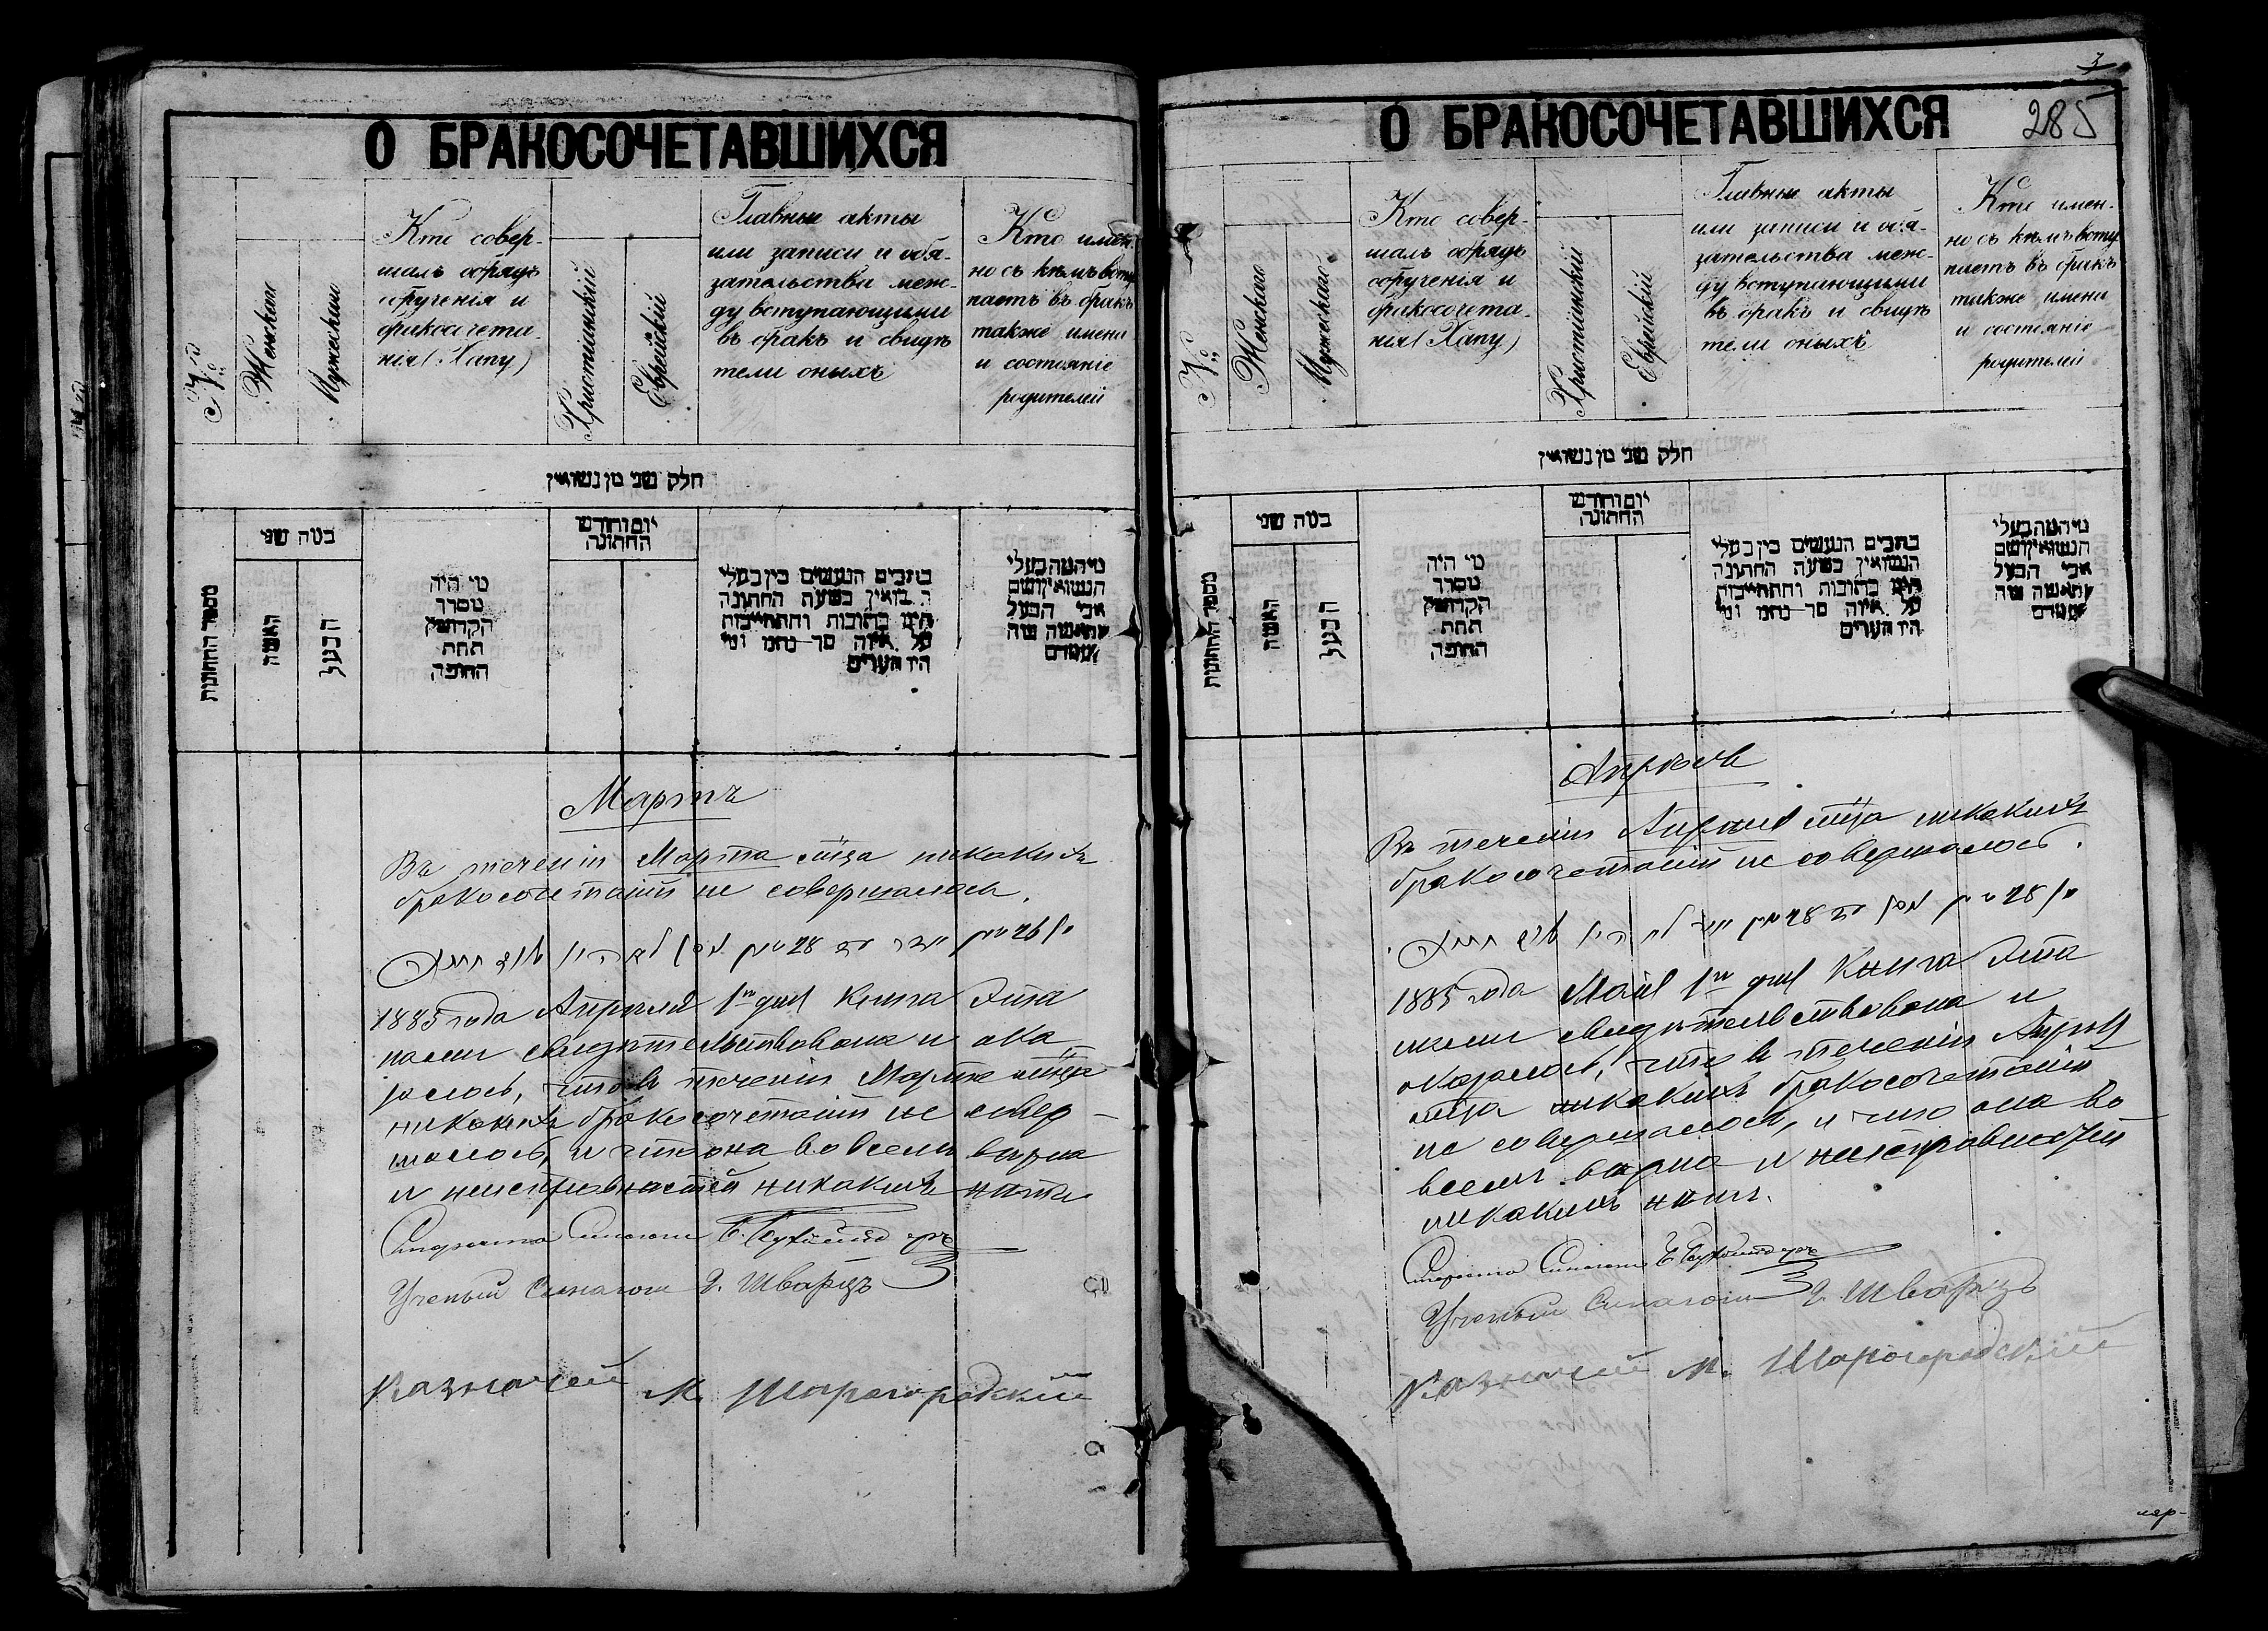 О БРАКОСОЧЕТАВШИХСЯ
№
Женскаго
Мужескаго
Кто совер-
шалъ обрядъ
обрученія и
бракосочета-
нія (Хапу)
Христіянскій
Еврейскій
Главные акты
или записи и обя-
зательства меж-
ду вступающими
въ бракъ и свидѣ
тели оныхъ
Кто имен-
но съ кѣмъ всту
паетъ въ бракъ
также имена
и состояніе
родителей
חלק שני מן נשואין
מספר החתונות
כמה שני
האשה
הבעל
מי היה
מסדר
הקדושין
תחת
החופה
יום וחודש
החתונה
כתבים הנעשים בין בעלי
בשעת החתונה
היינו כתובות והתחייבות
על איזה סך
היו העדים
מי המה בעלי
הנשואין ושם
אבי הבעל
והאשה
Мартъ
Въ теченіи Марта мѣца никакихъ
бракосочетаній не совершалось.
1885 года Апрѣля 1го дня книга эта
нами свидѣтельствована и ока
залось, что въ теченіи Марта мѣца
никакихъ бракосочетаній не совер-
шалось, и что она во всемъ вѣрна
и неисправностей никакихъ нѣтъ
Староста Синагоги
Ученый Синагоги Э. Шварцъ
Казначей М. Шарогородскій
3
285
О БРАКОСОЧЕТАВШИХСЯ
№
Женскаго
Мужескаго
Кто совер-
шалъ обрядъ
обрученія и
бракосочета-
нія (Хапу)
Христіянскій
Еврейскій
Главные акты
или записи и обя-
зательства меж-
ду вступающими
въ бракъ и свидѣ
тели оныхъ
Кто имен-
но съ кѣмъ всту
паетъ въ бракъ
также имена
и состояніе
родителей
חלק שני מן נשואין
מספר החתונות
כמה שני
האשה
הבעל
מי היה
מסדר
הקדושין
תחת
החופה
יום וחודש
החתונה
כתבים הנעשים בין בעלי
הנשואין בשעת החתונה
היינו כתובות והתחייבות
על איזה סך
היו העדים
מי המה בעלי
הנשואין ושם
אבי הבעל
והאשה
Апрѣль
Въ теченіи Апрѣля мѣца никакихъ
бракосочетаній не совершалось.
1885 года Маія 1го дня Книга эта
нами свидѣтельствована и
оказалось, что въ теченіи Апрѣля
мѣца никакихъ бракосочетаній
не совершалось, и что она во
всемъ вѣрна и неисправностей
никакихъ нѣтъ.
Староста Синагоги
Ученый Синагоги Э. Шварцъ
Казначей М. Шарогородскій